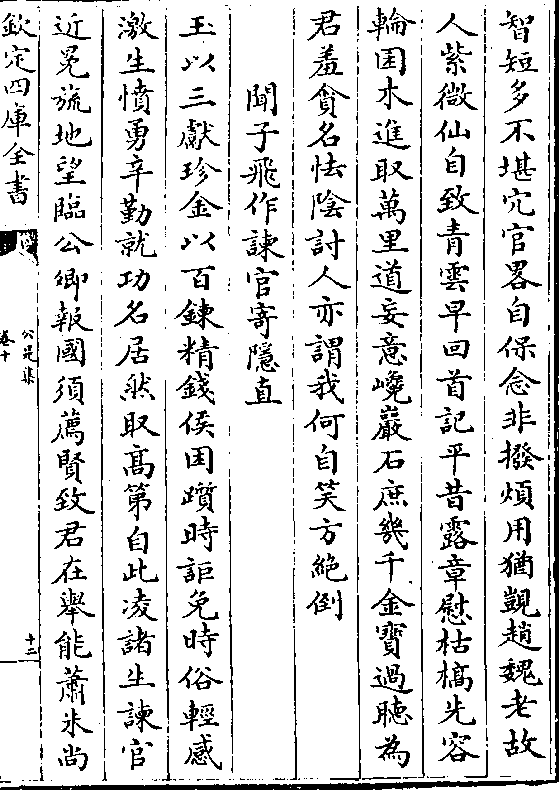 智短多不堪冗官畧自保念非撥煩用猶覬趙魏老故
人紫微仙自致青雲早回首記平昔露章慰枯槁先容
輪囷木進取萬里道妄意巉巖石庶幾千金寶過聽為
君羞貪名怯陰討人亦謂我何自笑方絶倒
聞子飛作諫官寄隱直
玉以三獻珍金以百鍊精錢侯困躓時詎免時俗輕感
激生憤勇辛勤就功名居然取髙第自此凌諸生諫官
近冕旒地望臨公卿報國須薦賢致君在舉能蕭朱尚
欽定四庫全書
公是集
卷十
十二